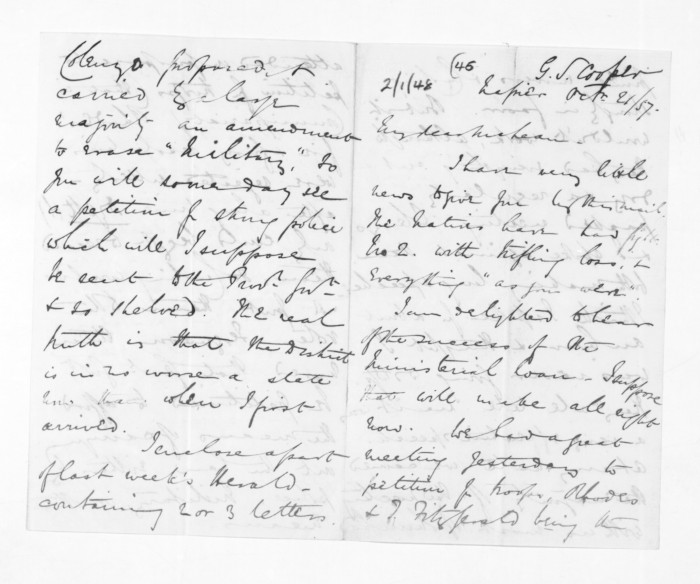 (46
G. S. Cooper
2/1/48
Napier Octr 21/57.
My dear McLean.
I have very little
news to give you by this mail.
The natives have had fight
No 2. with trifling loss. &
everything "as you were".
I am delighted to hear
of the success of the
Ministerial loan. I suppose
that will make all right
now. We had a great
meeting yesterday to
petition for troops, Rhodes
& J. Fitzgerald being the
Colenzo proposed, &
carried by large
majority an amendment
to erase "Military". So
you will some day see
a petition for strong police
which will I suppose
be sent to the Provl. Govt.
& so shelved. The real
truth is that the District
is in no worse a state
now than when I first
arrived.
I enclose a part
of last week's Herald -
containing 2 or 3 letters.